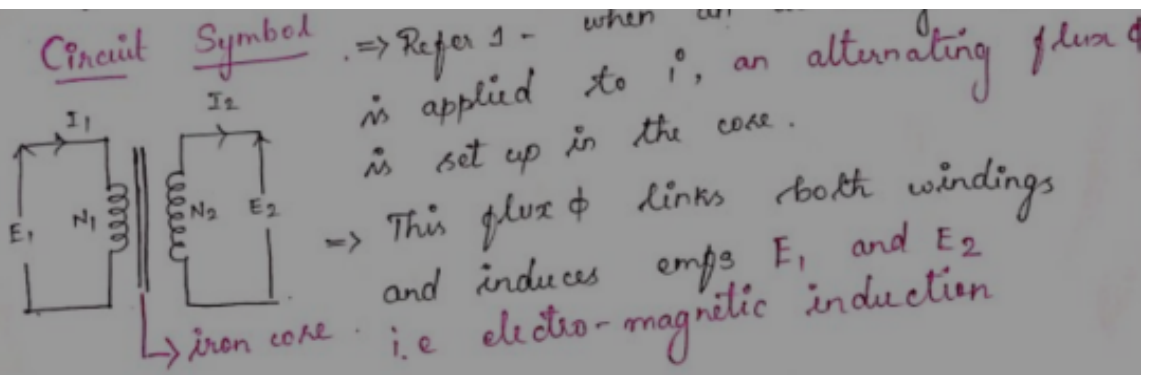 Circuit Symbol
I1
I2
E1
N1
N2
E2
→ iron core.
⇒ Refer 1 - when an
is applied to i, an alternating flux ϕ
is set up in the core.
⇒ This flux ϕ links both windings
and induces emfs E1 and E2
i.e electro-magnetic induction